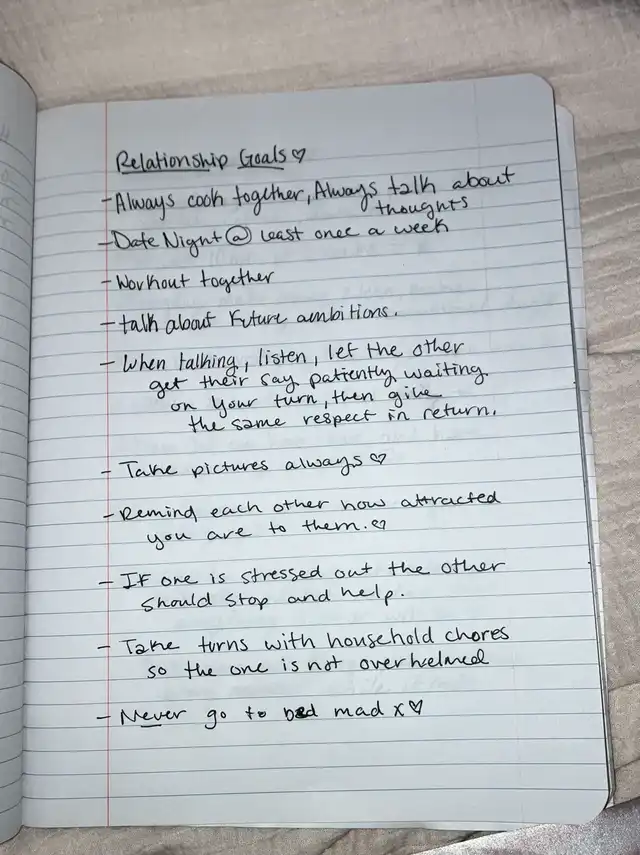 Relationship Goals♡
- Always cook together, Always talk about
thoughts
- Date Night @ least once a week
- Workout together
- talk about Future ambitions.
- When talking, listen, let the other
get their say patiently waiting
on your turn, then give
the same respect in return.
- Take pictures always♡
- Remind each other how attracted
you are to them.♡
- IF one is stressed out the other
should stop and help.
- Take turns with household chores
so the one is not overhelmed
- Never go to bed mad x♡